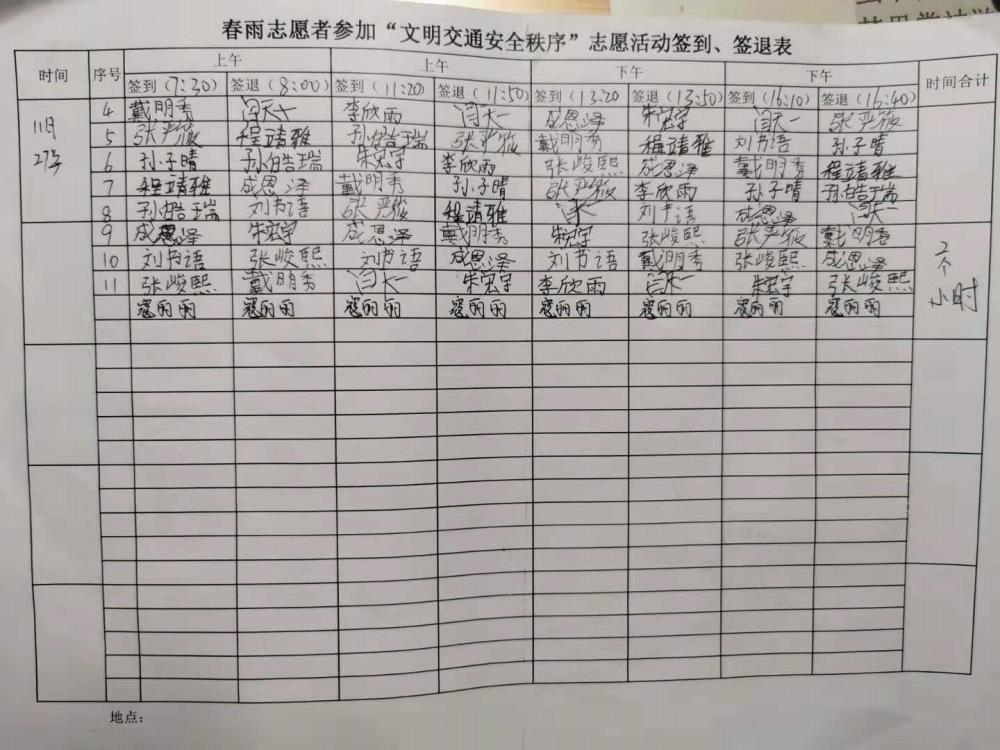 春雨志愿者参加“文明交通安全秩序”志愿活动签到、签退表
时间 序号 上午 上午 下午 下午 时间合计
签到(7:30) 签退(8:00) 签到(11:20) 签退(11:50) 签到(13:20 签退(13:50) 签到(16:10) 签退(16:40)
11月27号
4 戴明秀 闫天一 李欣雨 闫天一 成恩泽 朱宏宇 闫天一 张严筱
5 张严筱 程靖雅 孙皓瑞 张严筱 戴明秀 程靖雅 刘书语 孙子晴
6 孙子晴 孙皓瑞 朱宏宇 李欣雨 张峻熙 成恩泽 戴明秀 程靖雅
7 程靖雅 成恩泽 戴明秀 孙子晴 张严筱 李欣雨 孙子晴 孙皓瑞
8 孙皓瑞 刘书语 张严筱 程靖雅 闫天一 刘书语 成恩泽 闫天一
9 成恩泽 朱宏宇 成恩泽 戴明秀 朱宏宇 张峻熙 张严筱 戴明秀
10 刘书语 张峻熙 刘书语 成恩泽 刘书语 戴明秀 张峻熙 成恩泽
11 张峻熙 戴明秀 闫天一 朱宏宇 李欣雨 闫天一 朱宏宇 张峻熙
寇丽丽 寇丽丽 寇丽丽 寇丽丽 寇丽丽 寇丽丽 寇丽丽 寇丽丽
2个小时
地点：